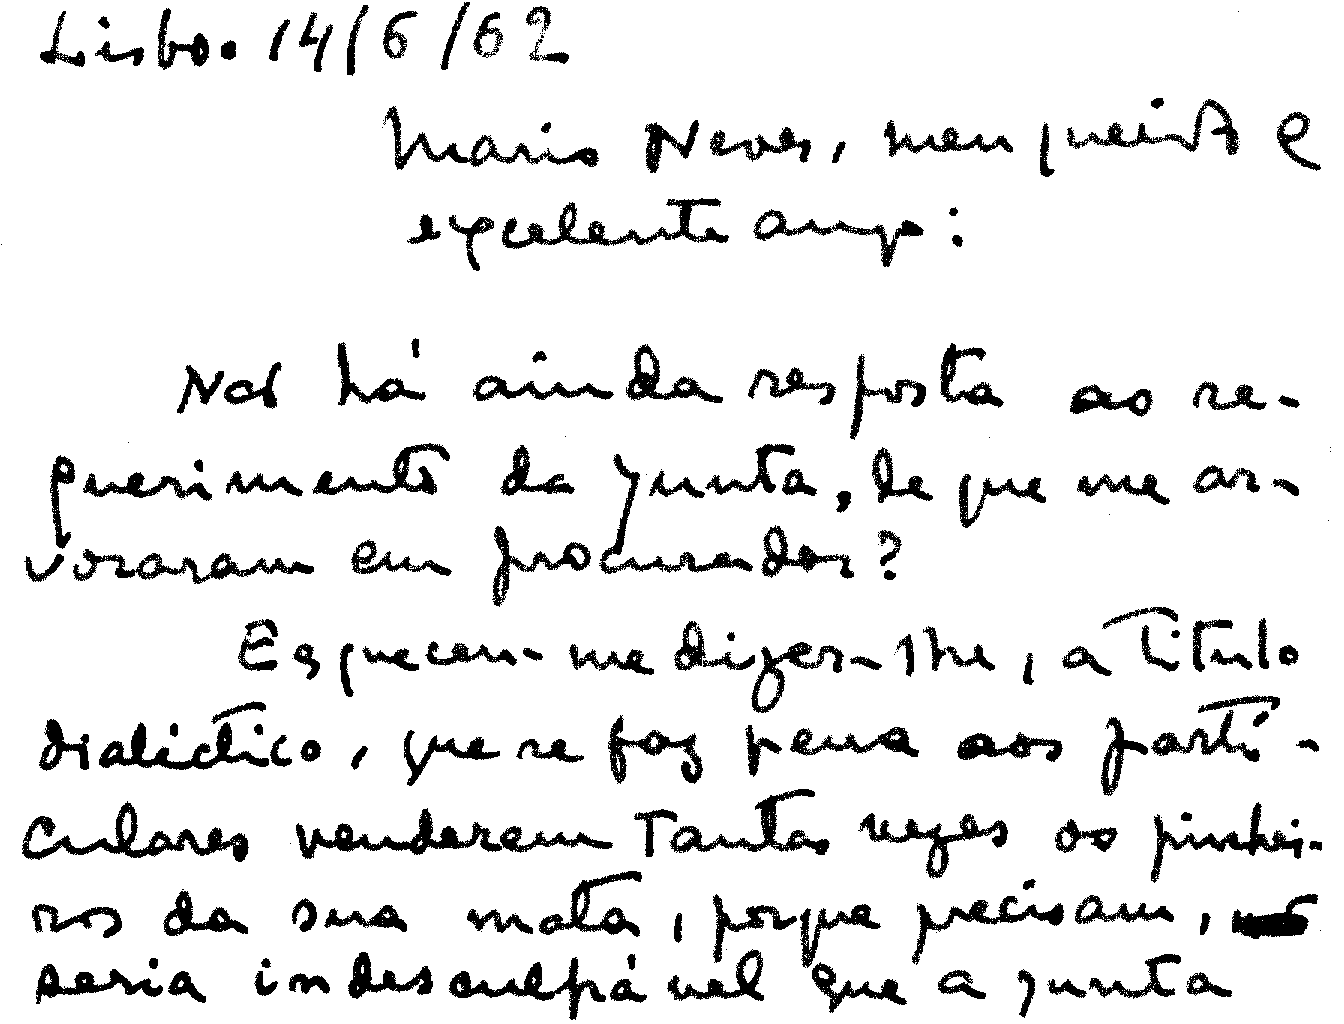 Lisboa 14/6/62
Mario Neves, meu querido e
excelente amigo:
Não há ainda resposta ao re-
querimento da Junta, de que me ar-
voraram em procurador?
Esqueceu-me dizer-lhe, a titulo
dialéctico, que se faz pena aos partí-
culares venderem tantas vezes os pinhei-
ros da sua mata, porque precisam,
seria indesculpável que a Junta